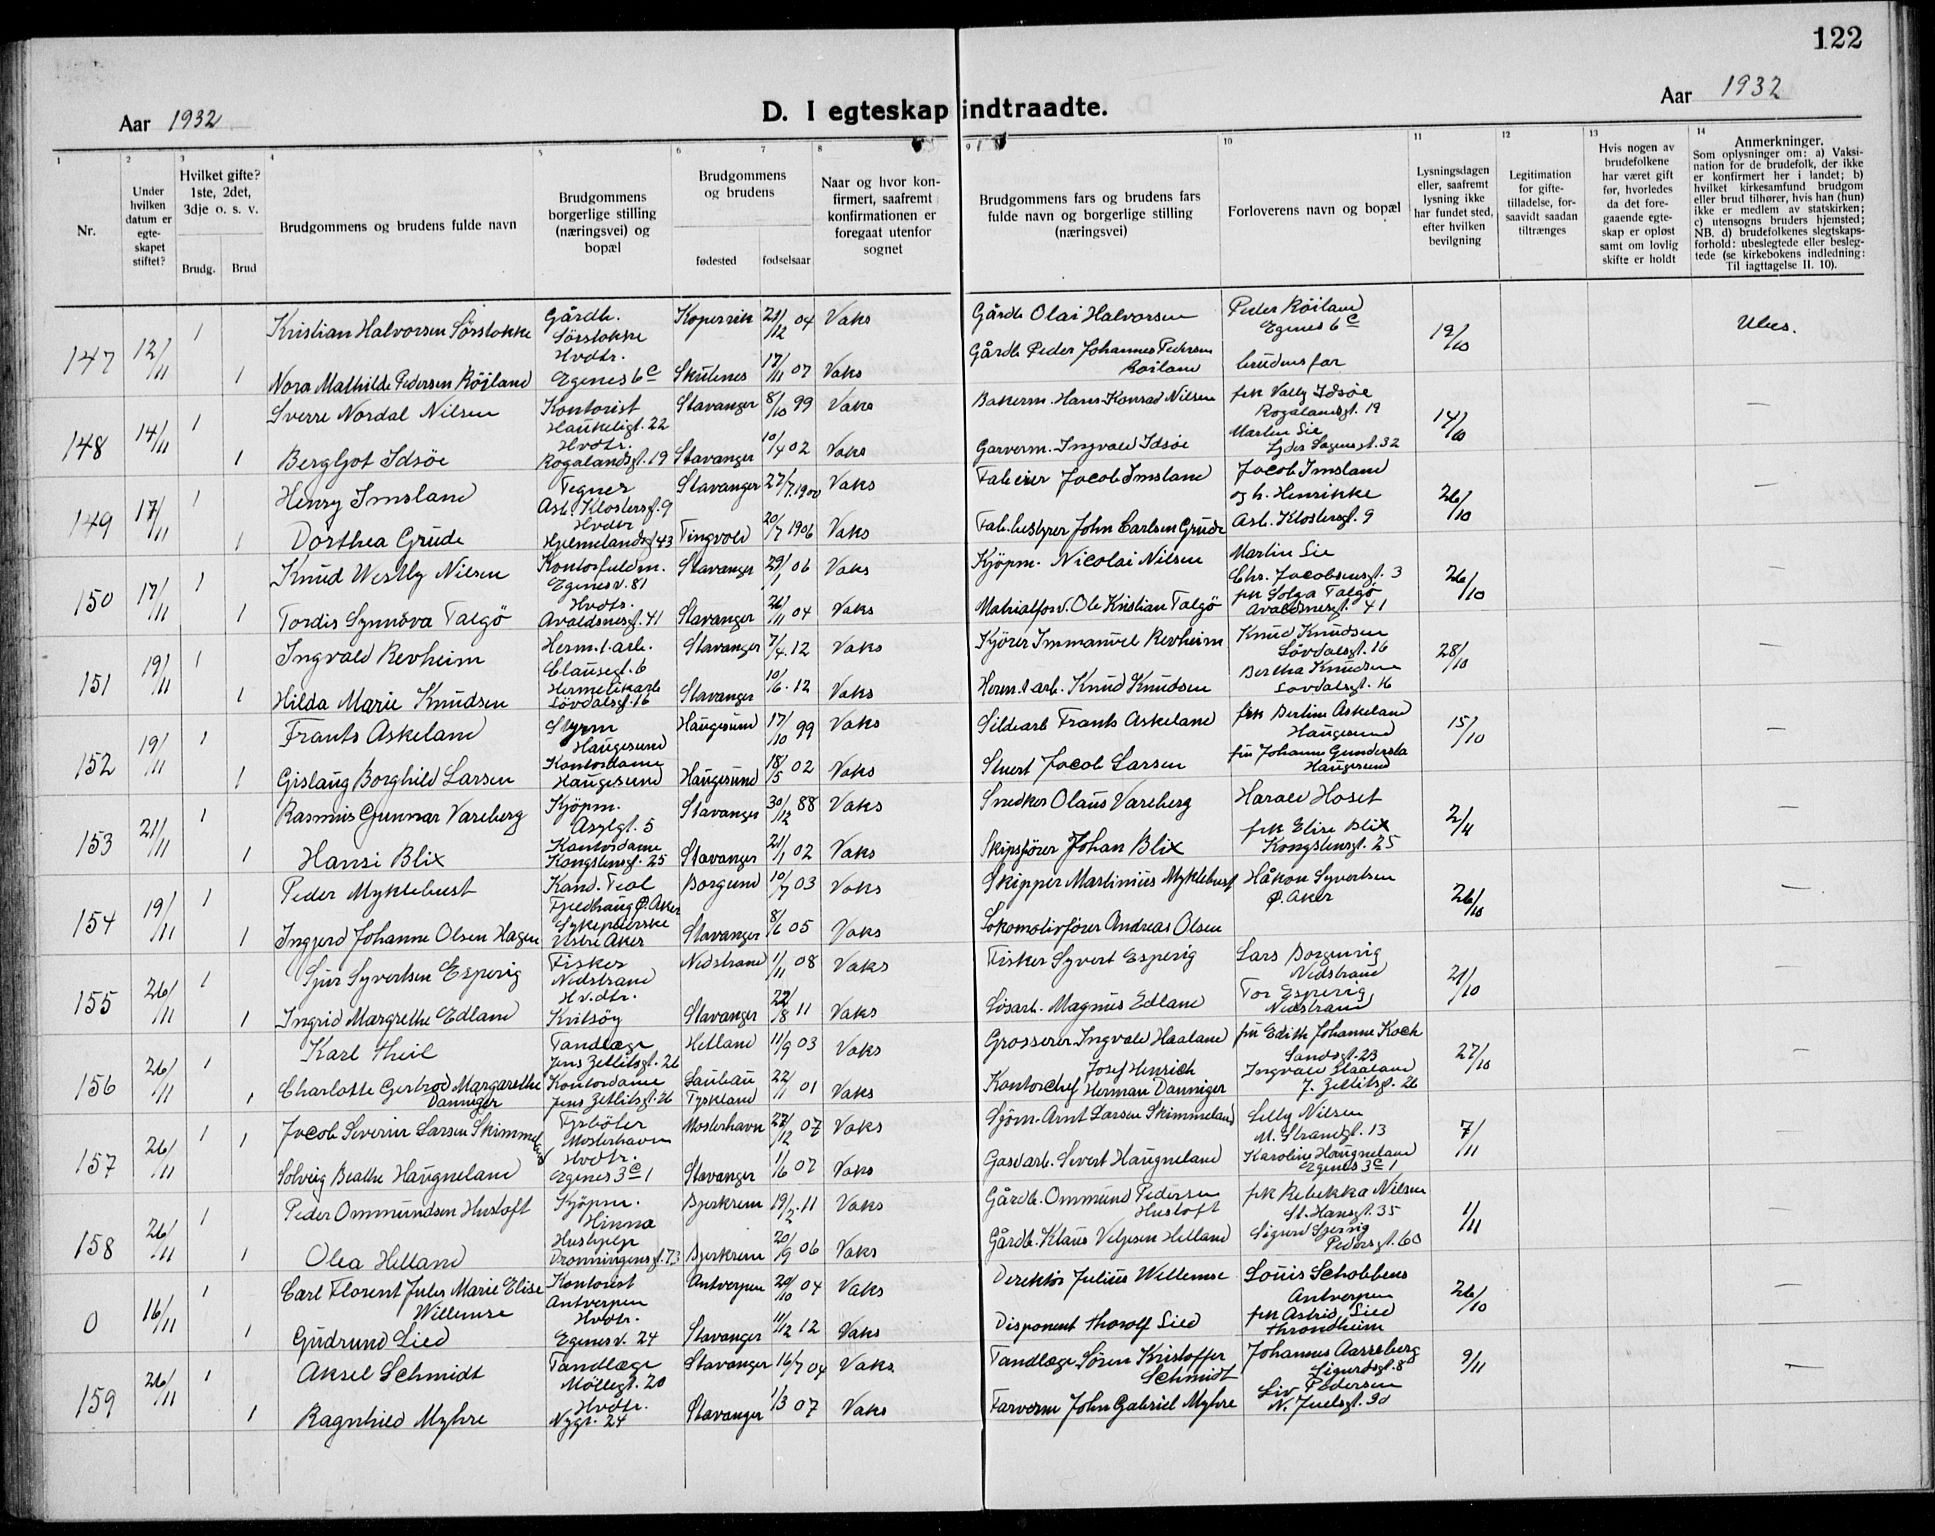 122
Aar 1932
D. I egteskap indtraadte.
Aar 1932
1 2 3 4 5 6 7 8 9 10 11 12 13 14
Nr.
Under hvilken datum er egte-skapet stiftet?
Hvilket gifte? 1ste, 2det, 3dje o. s. v.
Brudg. Brud
Brudgommens og brudens fulde navn
Brudgommens borgerlige stilling (næringsvei) og bopæl
Brudgommens og brudens
fødested fødselsaar
Naar og hvor kon-firmert, saafremt konfirmationen er foregaat utenfor sognet
Brudgommens fars og brudens fars fulde navn og borgerlige stilling (næringsvei)
Forloverens navn og bopæl
Lysningsdagen eller, saafremt lysning ikke har fundet sted, efter hvilken bevilgning
Legitimation for gifte-tilladelse, for-saavidt saadan tiltrænges
Hvis nogen av brudefolkene har været gift før, hvorledes da det fore-gaaende egte-skap er opløst samt om lovlig skifte er holdt
Anmerkninger.
Som oplysninger om: a) Vaksi-nation for de brudefolk, der ikke er konfirmert her i landet; b) hvilket kirkesamfund brudgom eller brud tilhører, hvis han (hun) ikke er medlem av statskirken; c) utensogns bruders hjemsted; NB. d) brudefolkenes slegtskaps-forhold: ubeslegtede eller besleg-tede (se kirkebokens indledning: Til iagttagelse II. 10).
147 12/11 1 Kristian Halvorsen Sörstokke Gårdb. Sörstokke Kopervik 21/12 04 Vaks Gårdb Olai Halvorsen Peder Röiland Egenes 6c 12/10 Ubes.
1 Nora Mathilde Pedersen Röiland Hvdtr. Egenes 6c Skudenes 17/11 07 Vaks Gårdb Peder Johannes Pedersen Röiland brudens far
148 14/11 1 Sverre Nordal Nilsen Kontorist Haukeligt. 22 Stavanger 8/10 99 Vaks Bakerm. Hans Konrad Nilsen frk Vally Idsöe Rogalandsgt. 19 14/10 —
1 Bergljot Idsöe Hvdtr. Rogalandsgt. 19 Stavanger 10/4 02 Vaks Garverm. Ingvald Idsöe Martin Lie Lyder Sagensgt. 32
149 17/11 1 Henry Imsland Tegner Asb. Klostersgt. 9 Stavanger 27/7 1900 Vaks Fabeier Jacob Imsland Jacob Imsland 26/10 —
1 Dorthea Grude Hvder Hjelmelandsgt 43 Tingvold 20/7 1906 Vaks Fab.bestyrer John Carlsen Grude og h. Henrikke Asb. Klostersgt. 9
150 17/11 1 Knud Westby Nilsen Kontorfuldm. Egenesv. 81 Stavanger 29/1 06 Vaks Kjöpm. Nicolai Nilsen Martin Lie Chr. Jacobsensgt. 3 26/10 —
1 Tordis Synnöva Talgö Hvdtr. Avaldsnesgt. 41 Stavanger 26/11 04 Vaks Matrialforv. Ole Kristian Talgö frk Solga Talgö Avaldsnesgt. 41
151 19/11 1 Ingvald Revheim Herm.t.arb. Clausegt. 6 Stavanger 7/4. 12 Vaks Kjörer Immanuel Revheim Knud Knudsen Lövdalsgt. 16 28/10 —
1 Hilda Marie Knudsen Hermetikarb Lövdalsgt. 16 Stavanger 10/6. 12 Vaks Herm.t arb. Knud Knudsen Bertha Knudsen Lövdalsgt. 16
152 19/11 1 Frants Askeland Styrm Haugesund Haugesund 17/10 99 Vaks Sildearb Frants Askeland frk Berline Askeland Haugesund 15/10 —
1 Gislaug Borghild Larsen Kontordame Haugesund Haugesund 18/5 02 Vaks Stuert Jacob Larsen Haugesund
153 21/11 1 Rasmus Gunnar Vareberg Kjöpm. Asylgt. 5 Stavanger 30/12 88 Vaks Snedker Olaus Vareberg Harald Hoset 2/4 —
1 Hansi Blix Kontordame Kongstensgt. 25 Stavanger 21/1 02 Vaks Skipsförer Johan Blix frk Elise Blix Kongstensgt. 25
154 19/11 1 Peder Myklebust Kand. Teol Fjeldhaug Ø. Aker Borgund 10/7 03 Vaks Skipper Martinius Myklebust Håkon Syvertsen Ø. Aker 26/10 —
1 Ingjerd Johanne Olsen Hagen Sykepleierske Vestre Aker Stavanger 8/6 05 Vaks Lokomotivförer Andreas Olsen
155 26/11 1 Sjur Syvertsen Espevig Fisker Nedstrand Nedstrand 1/11 08 Vaks Fisker Syvert Espevig Lars Borgenvig Nedstrand 21/10 —
1 Ingrid Margrethe Edland Hv.dtr. Kvitsöy Stavanger 22/8 11 Vaks Lösarb. Magnus Edland Tor Espevig Nedstrand
156 26/11 1 Karl Theil Tandlæge Jens Zetlitsgt. 26 Hetland 11/9 03 Vaks Grosserer Ingvald Haaland fru Edith Johanne Koch Sandsgt. 23 27/10 —
1 Charlotte Gertrod Margarethe Danniger Kontordame Jens Zetlitsgt. 26 Laubau Tyskland 22/1 01 Vaks Kontorchef Josef Henrich Herman Danniger Ingvald Haaland J. Zetlitsgt. 26
157 26/11 1 1 Jacob Severin Larsen Skimmeland Fyrböter Mosterhavn Mosterhavn 22/12 07 Vaks Sjöm. Arnt Larsen Skimmeland Lilly Nilsen M. Strandgt. 13 7/11 —
Solveig Beathe Haugneland Hvdtr. Egenes 3c 1 Stavanger 11/6 07 Vaks Gasdarb. Severt Haugneland Karoline Haugneland Egenes 3c 1
158 26/11 1 Peder Ommundsen Hustoft Kjöpm. Hinna Bjerkrem 19/2. 11 Vaks Gårdb. Ommund Pedersen Hustoft frk Rebekka Nilsen St. Hansgt. 35 1/11 —
1 Olea Helland Hushjelp Dronningensgt. 73 Bjerkrem 20/9 06 Vaks Gårdb. Klaus Veljesen Helland Sigurd Pedersgt. 60
0 16/11 1 Carl Florent Jules Marie Elise Willemse Kontorist Antverpen Antverpen 20/10 04 Vaks Direktör Julius Willemse Louis Schobbens Antverpen 26/10 —
1 Gudrund Lied Hvdtr. Egenesv. 24 Stavanger 11/12 12 Vaks Disponent Thorolf Lied frk Astrid Lied Throndheim
159 26/11 1 Aksel Schmidt Tandlæge Möllegt. 20 Stavanger 16/7 04 Vaks Tandlæge Sören Kristoffer Schmidt Johannes Aarreberg Sigurdsgt. 8 9/11 —
1 Ragnhild Myhre Hvdtr. Nygt. 24 Stavanger 1/3 07 Vaks Farverm John Gabriel Myhre Liv Pedersen N. Juelsgt. 30